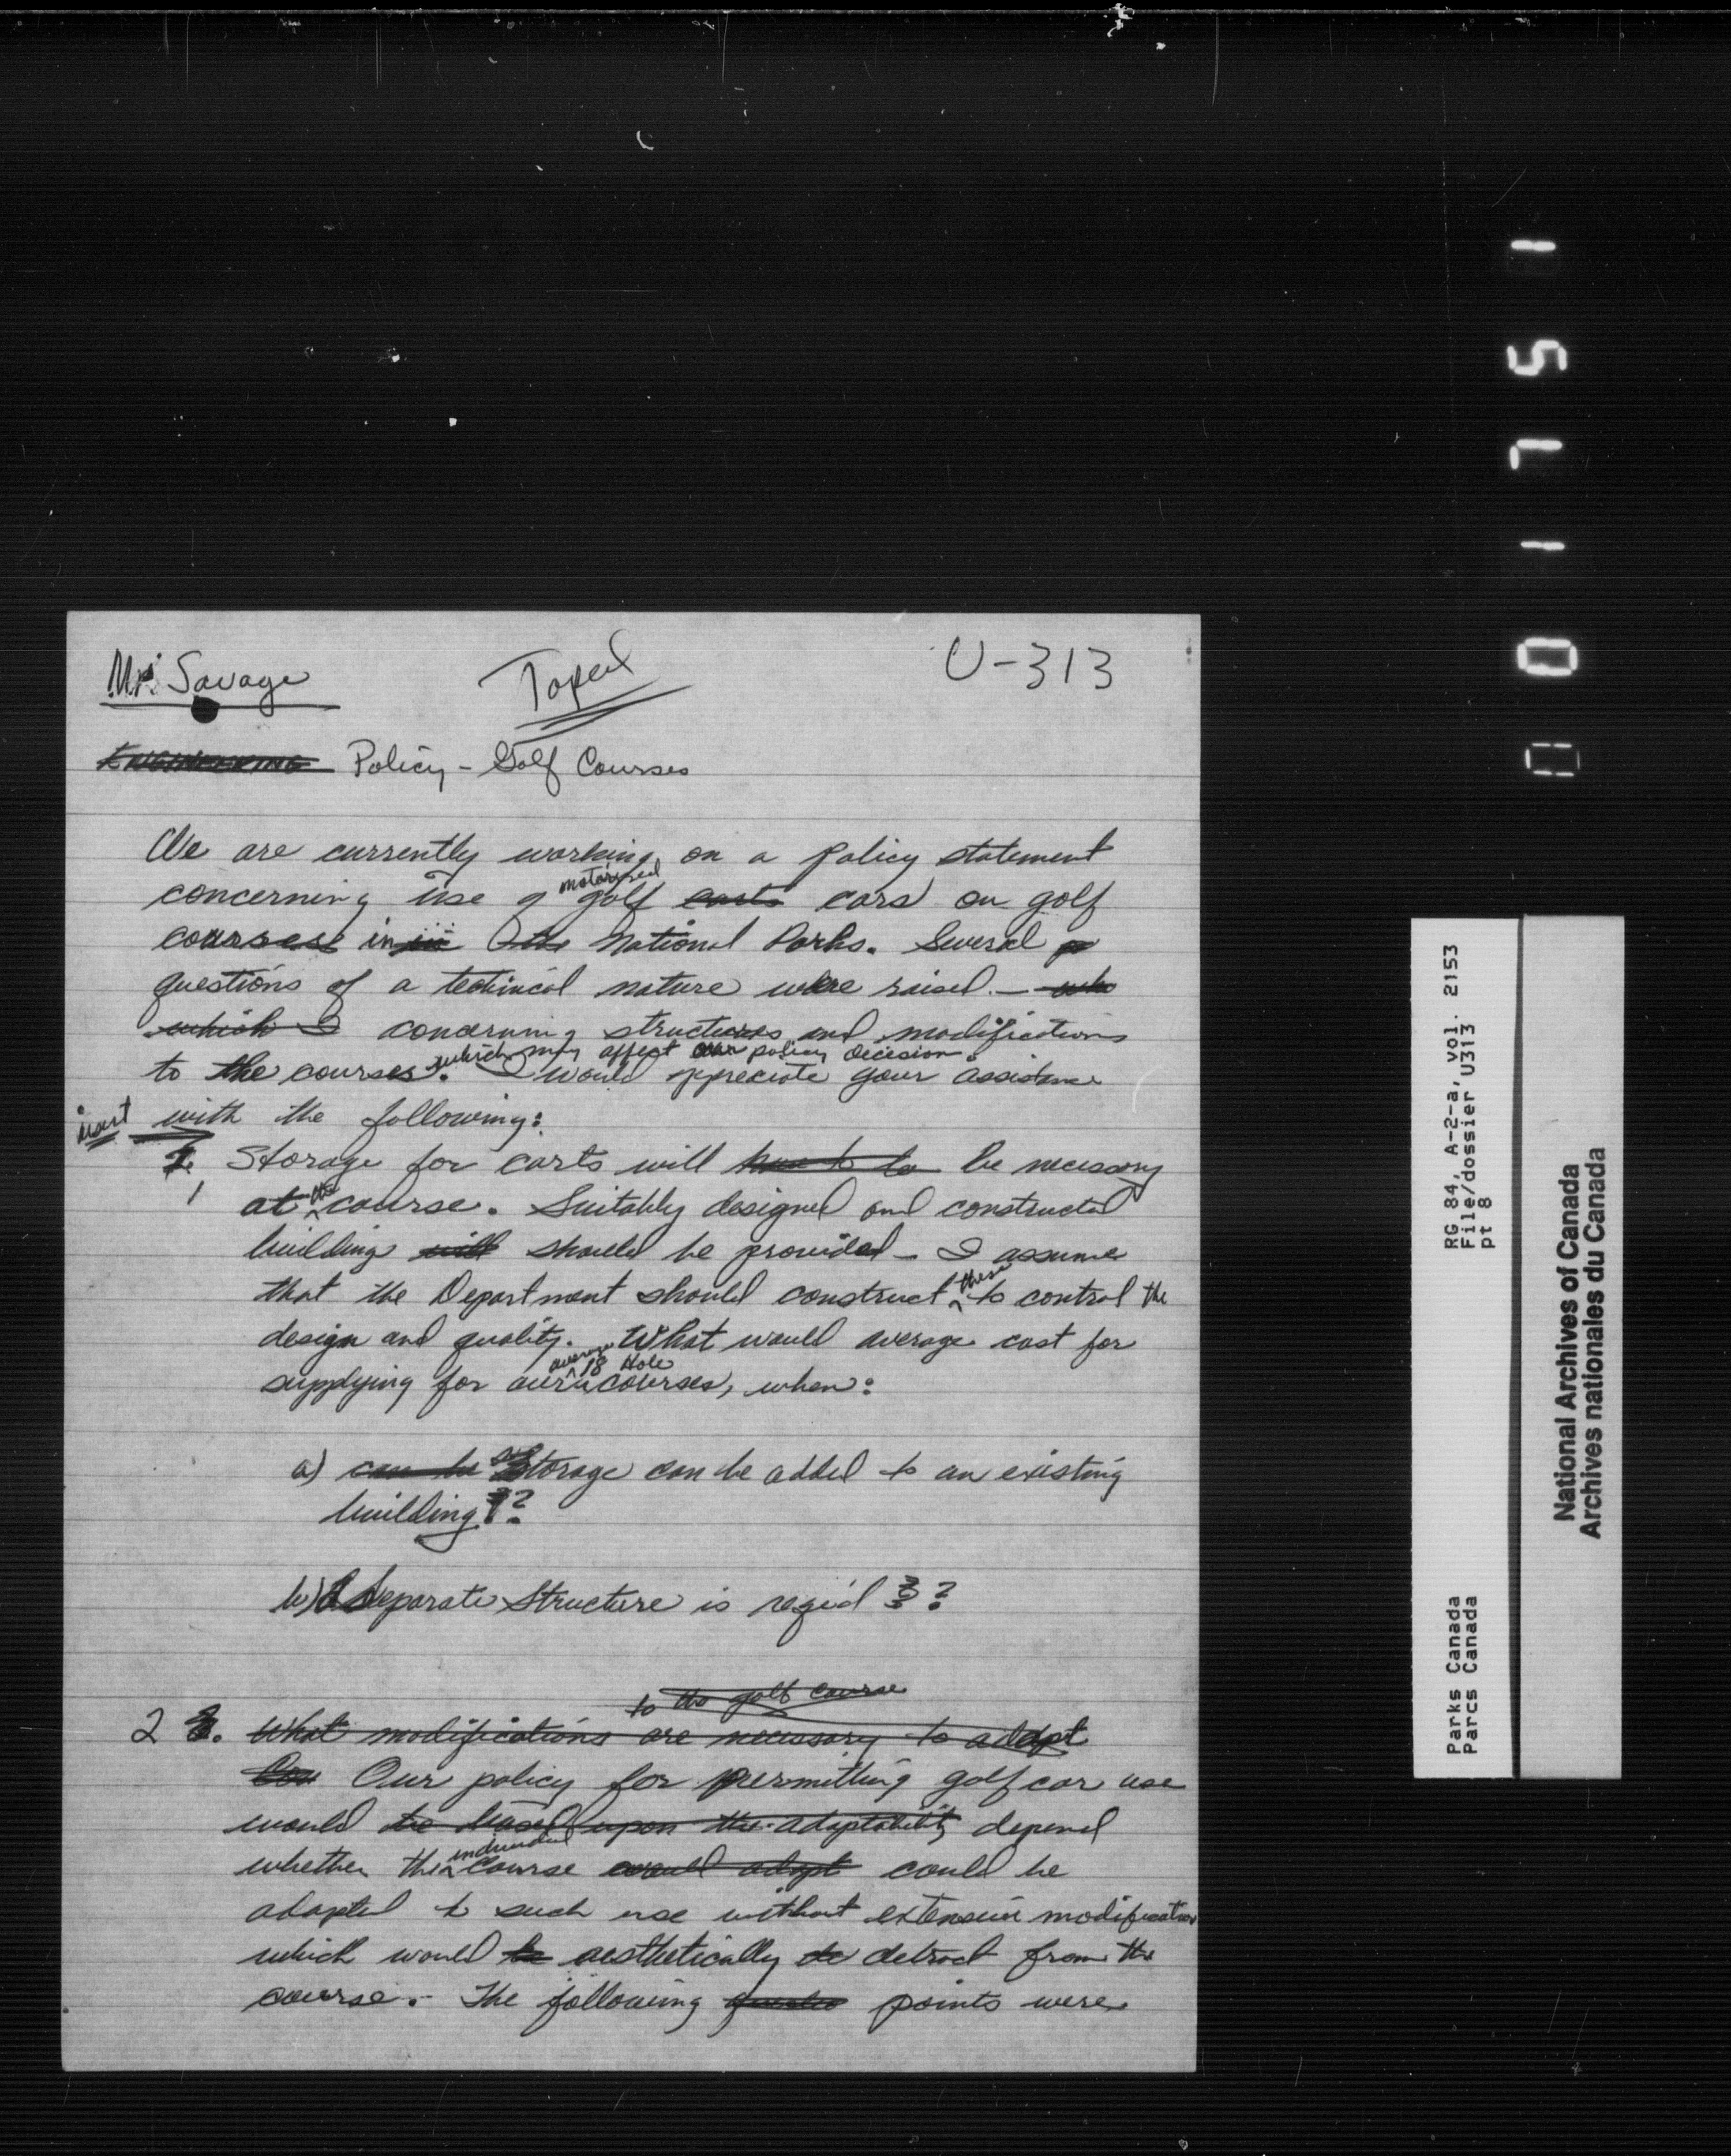 Mr. Savage
Taped
U-313
ENGINEERING Policy - Golf Courses
We are currently working on a policy statement
motorized
concerning use of golf carts cars on golf
courses in the National Parks. Several
questions of a techincal nature were raised. - who
which I concerning structures and modifications
which may affect our policy decision.
to the courses. I would appreciate your assistance
insert with the following:
1. Storage for carts will have to be be necessary
at the course. Suitably designed and constructed
building will should be provided - I assume
that the Department should construct these to control the
design and quality. What would average cost for
average 18 Hole
supplying for our courses, when:
a) can be Storage can be added to an existing
building?
b) A Separate Structure is req'd ?
to the golf course
2 2. What modifications are necessary to adapt
Our policy for permitting golf car use
would be based upon the adaptability depend
individual
whether the course would adapt could be
adapted to such use without extensive modification
which would be aesthetically de detract from the
course. - The following points were
001751
RG 84, A-2-a, vol. 2153
File/dossier U313
pt 8
Parks Canada
Parcs Canada
National Archives of Canada
Archives nationales du Canada